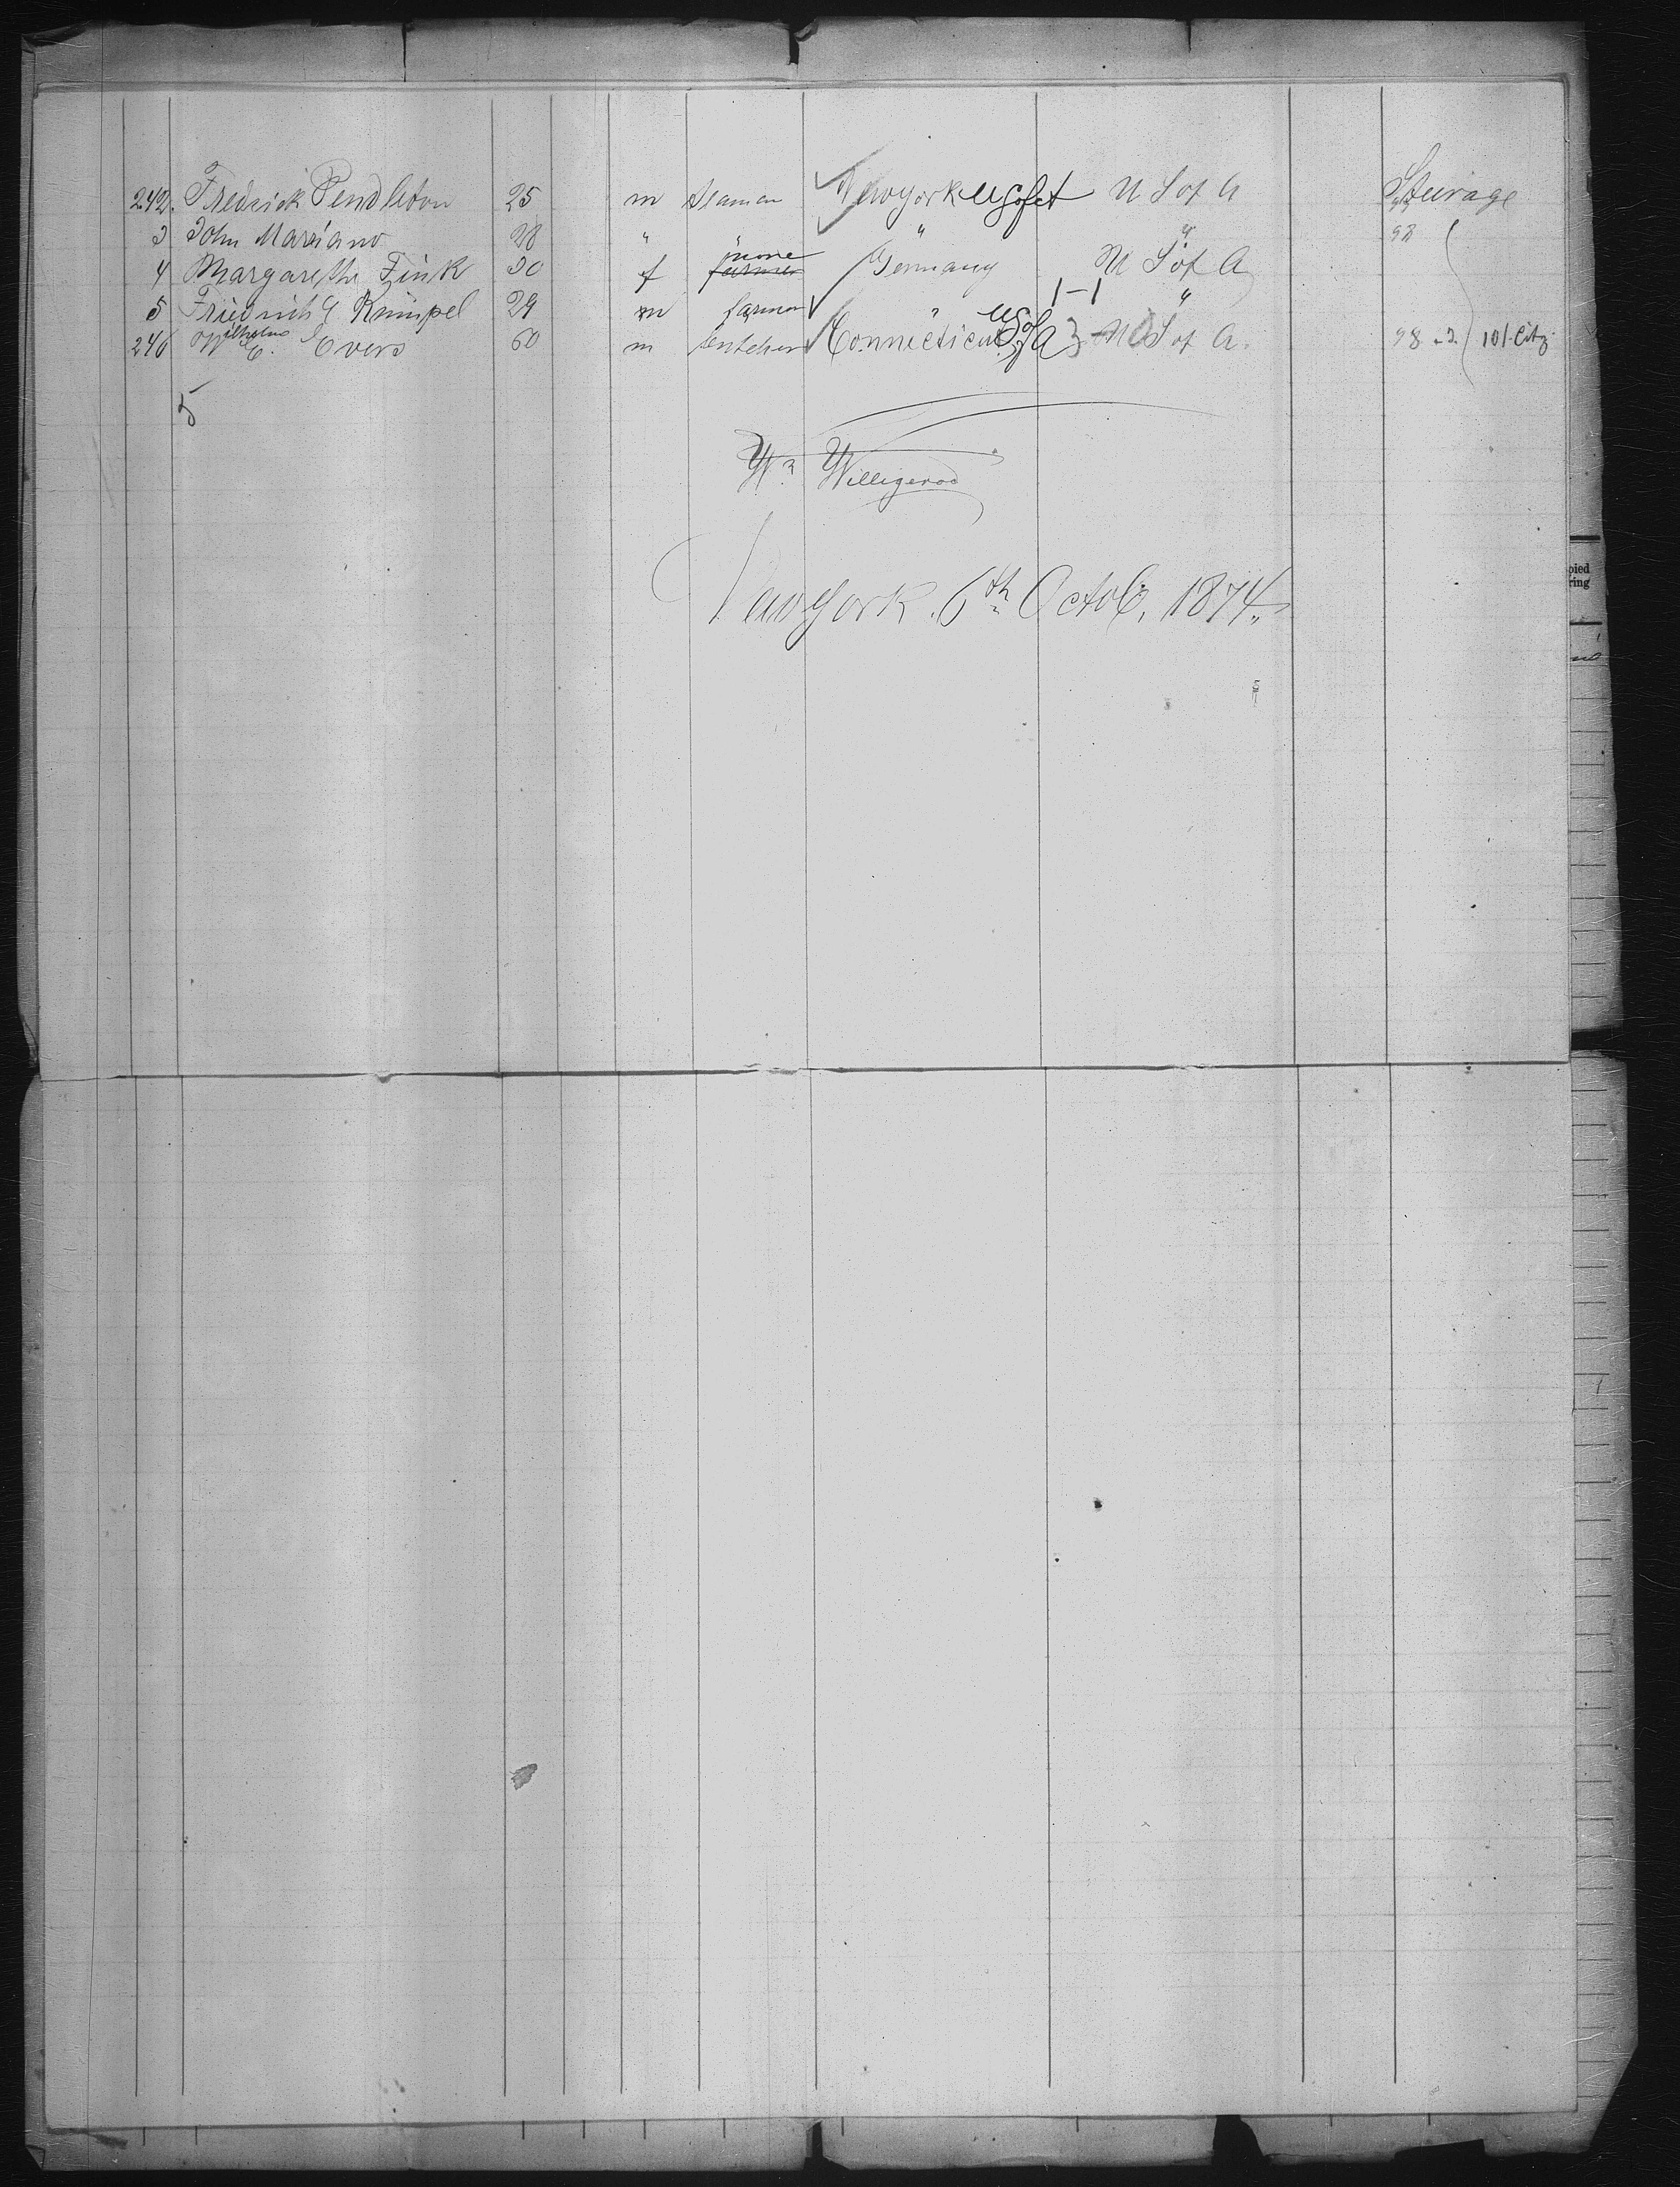 242. Fredrick Pendleton 25 m Seaman Newyork US of A U S of A Steerage
3 John Mariano 28 " " " " 98
4 Margarethe Fink 30 f none farmer Germany U S of A
5 Friedrich G Knimpel 29 m farmer " US of A 1-1 "
246 Wilhelm E. Evers 60 m butcher Connecticut US of A 3 U S of A. 98-3 101 Citz
5
Wm Willigerod
Newyork. 6th Octob. 1874.
pied
ring